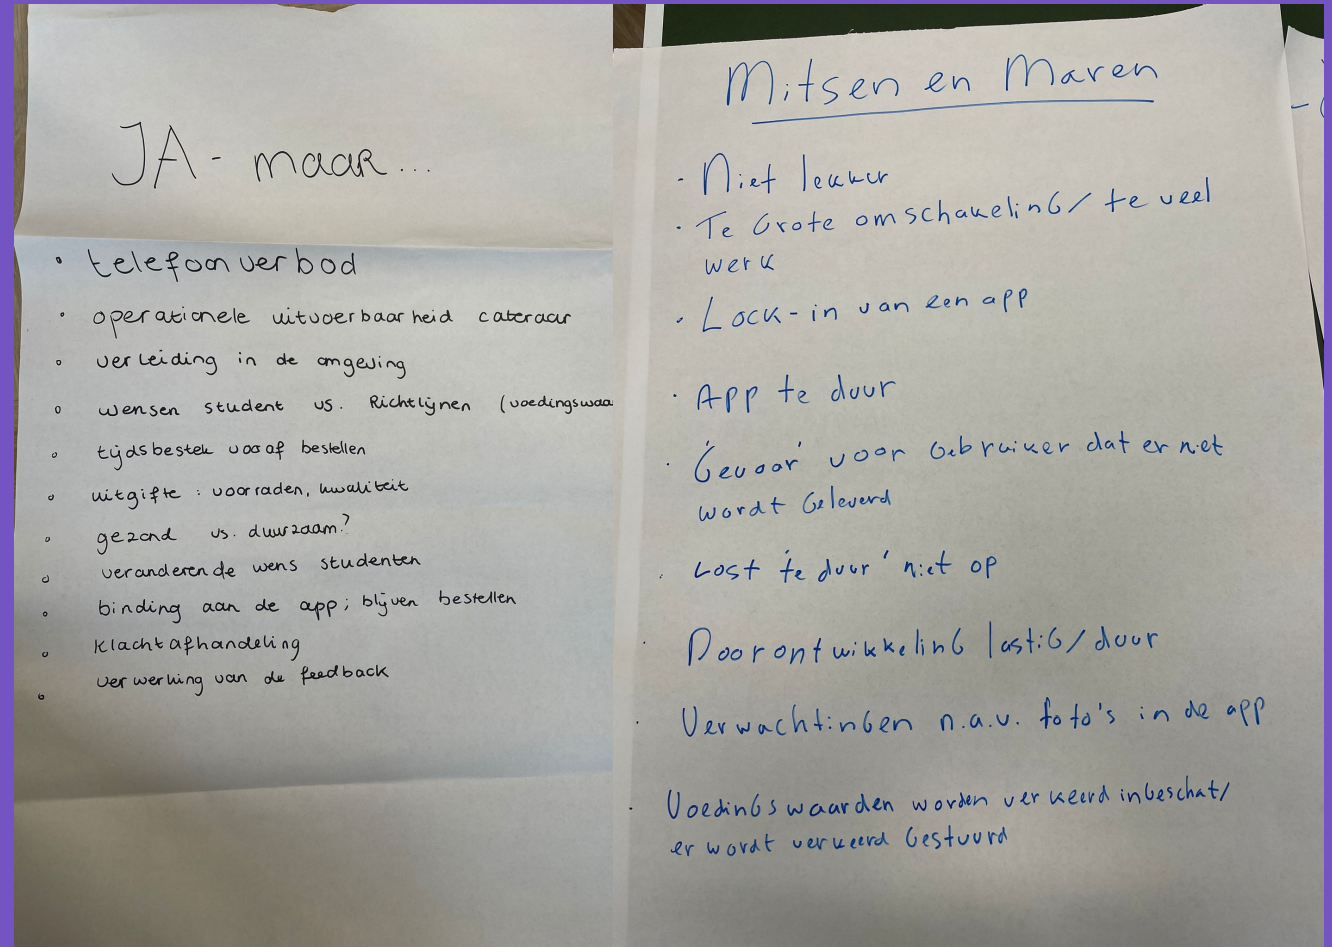 JA - maar...
• telefoonverbod
• operationele uitvoerbaarheid cateraar
• verleiding in de omgeving
• wensen student vs. Richtlijnen (voedingswaa
• tijdsbestek vooraf bestellen
• uitgifte : voorraden, kwaliteit
• gezond vs. duurzaam?
• veranderende wens studenten
• binding aan de app; blijven bestellen
• klachtafhandeling
• verwerking van de feedback
Mitsen en Maren
· Niet lekker
· Te Grote omschakeling/ te veel
werk
· Lock-in van een app
· App te duur
· 'Gevaar' voor Gebruiker dat er niet
wordt Geleverd
· Lost 'te duur' niet op
· Doorontwikkeling lastig/duur
· Verwachtingen n.a.v. foto's in de app
· Voedingswaarden worden verkeerd ingeschat/
er wordt verkeerd Gestuurd